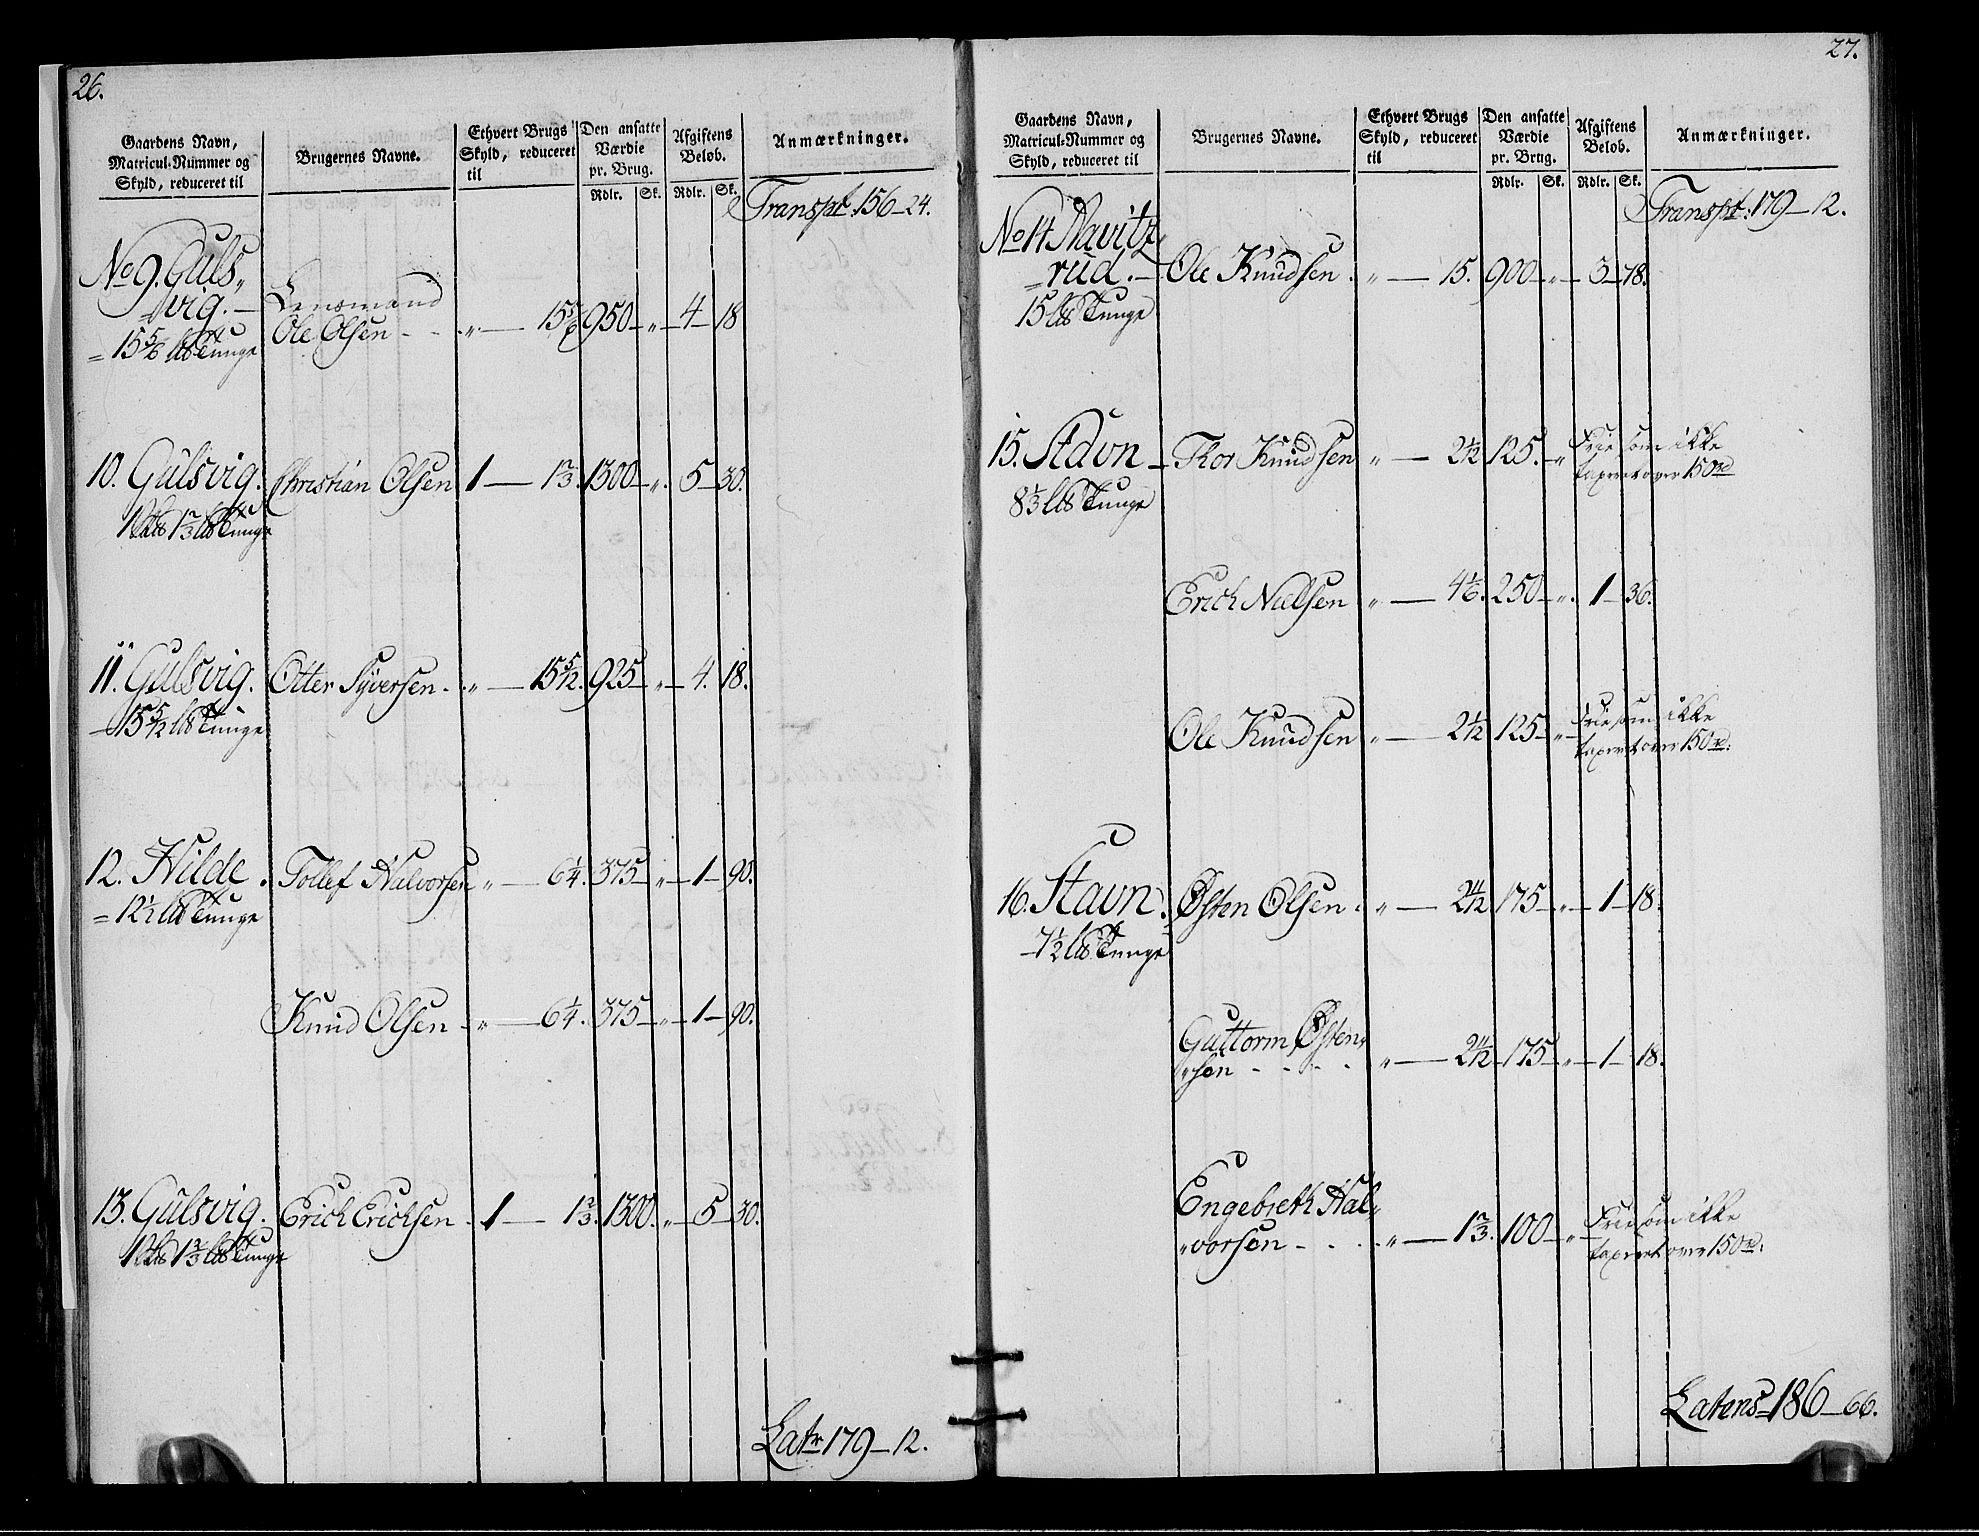 26.
Gaardens Navn, Matricul-Nummer og Skyld, reduceret til | Brugernes Navne. | Ethvert Brugs Skyld, reduceret til | Den ansatte Værdie pr. Brug. Rdlr. Sk. | Afgiftens Beløb. Rdlr. Sk. | Anmærkninger.
Transpt. 156 – 24.
No 9. Guls„ Lensmand
vig. – Ole Olsen - - „ — 15 5/6 950 – „ – 4 – 18
= 15 5/6 lb Tunge
10. Gulsvig. Christian Olsen 1 — 1 2/3. 1300 – „. 5 – 30.
1 1 2/3 lb Tunge
11. Gulsvig. Otter Syversen. „ — 15 5/12. 925 – „ – 4. 18.
– 15 5/12 lb Tunge
12. Hilde. Tollef Halvorsen „ — 6 1/4. 375 – „ – 1 – 90.
= 12 1/2 lb Tunge
Knud Olsen – „ — 6 1/4. 375 – „ – 1 – 90.
13. Gulsvig. Erich Erichsen. 1 — 1 2/3. 1300. „ – 5 – 30.
1 1 2/3 lb Tunge
Latr 179 – 12.
27.
Gaardens Navn, Matricul-Nummer og Skyld, reduceret til | Brugernes Navne. | Ethvert Brugs Skyld, reduceret til | Den ansatte Værdie pr. Brug. Rdlr. Sk. | Afgiftens Beløb. Rdlr. Sk. | Anmærkninger.
Transpt: 179 – 12.
No 14 Navitz„
= rud. – Ole Knudsen. „ — 15. 900 – „ – 3 – 78.
15 lb Tunge
15. Stavn – Thor Knudsen „ — 2 1/2 125. „ Frie som ikke
8 1/3 lb Tunge taxeret over 150 rd
Erich Nielsen „ — 4 1/6. 250 – „. 1 – 36.
Ole Knudsen „ — 2 1/2 125 – „ – Frie som ikke
taxeret over 150 rd:
16. Stavn. Østen Olsen. „ — 2 11/12 175 – „ – 1 – 18.
– 7 1/2 lb Tunge
Guttorm Østen„
„sen - - - - „ — 2 11/12 175 – „ – 1 – 18.
Engebreth Hal„
„vorsen - - - „ — 1 2/3. 100 – „ – Frie som ikke
taxeret over 150 rd:
Latens – 186 – 66.